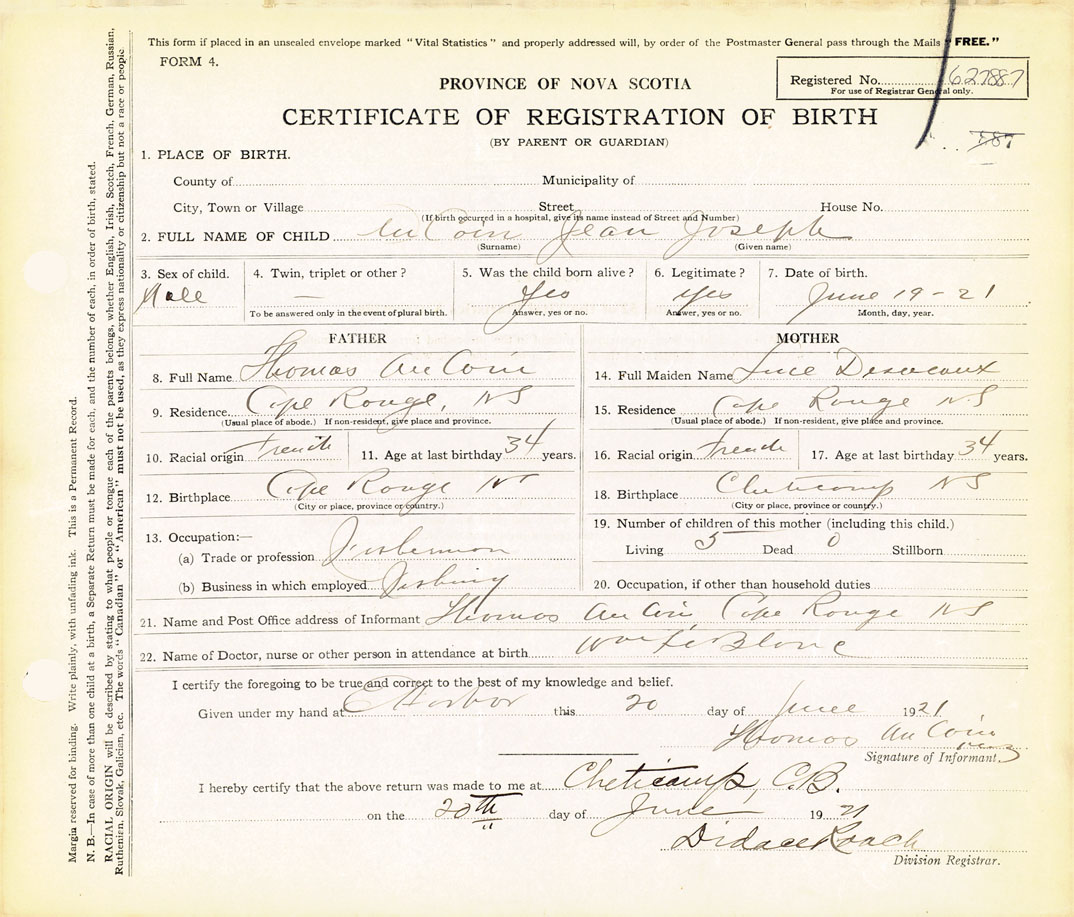 This form if placed in an unsealed envelope marked "Vital Statistics" and properly addressed will, by order of the Postmaster General pass through the Mails "FREE."
FORM 4.
Registered No. 627887
For use of Registrar General only.
PROVINCE OF NOVA SCOTIA
CERTIFICATE OF REGISTRATION OF BIRTH
(BY PARENT OR GUARDIAN)
887
1. PLACE OF BIRTH.
County of Municipality of
City, Town or Village Street House No.
(If birth occurred in a hospital, give its name instead of Street and Number)
2. FULL NAME OF CHILD AuCoin Jean Joseph
(Surname) (Given name)
3. Sex of child. 4. Twin, triplet or other? 5. Was the child born alive? 6. Legitimate? 7. Date of birth.
Male — Yes yes June 19-21
To be answered only in the event of plural birth. Answer, yes or no. Answer, yes or no. Month, day, year.
FATHER MOTHER
8. Full Name Thomas AuCoin 14. Full Maiden Name Luce Deveaux
9. Residence Cape Rouge, NS 15. Residence Cape Rouge NS
(Usual place of abode.) If non-resident, give place and province. (Usual place of abode.) If non-resident, give place and province.
10. Racial origin French 11. Age at last birthday 34 years. 16. Racial origin French 17. Age at last birthday 34 years.
12. Birthplace Cape Rouge NS 18. Birthplace Cheticamp NS
(City or place, province or country.) (City or place, province or country.)
13. Occupation:— 19. Number of children of this mother (including this child.)
(a) Trade or profession Fisherman Living 5 Dead 0 Stillborn
(b) Business in which employed Fishing 20. Occupation, if other than household duties
21. Name and Post Office address of Informant Thomas AuCoin Cape Rouge NS
22. Name of Doctor, nurse or other person in attendance at birth Wm LeBlanc
I certify the foregoing to be true and correct to the best of my knowledge and belief.
Given under my hand at Harbor this 20 day of June 1921
Thomas AuCoin
Signature of Informant.
I hereby certify that the above return was made to me at Cheticamp, C.B.
on the 20th day of June 1921
Didace Roach
Division Registrar.
Margin reserved for binding. Write plainly, with unfading ink. This is a Permanent Record.
N. B.—In case of more than one child at a birth, a Separate Return must be made for each, and the number of each, in order of birth, stated.
RACIAL ORIGIN will be described by stating to what people or tongue each of the parents belongs, whether English, Irish, Scotch, French, German, Russian,
Ruthenian, Slovak, Galician, etc. The words "Canadian" or "American" must not be used, as they express nationality or citizenship but not a race or people